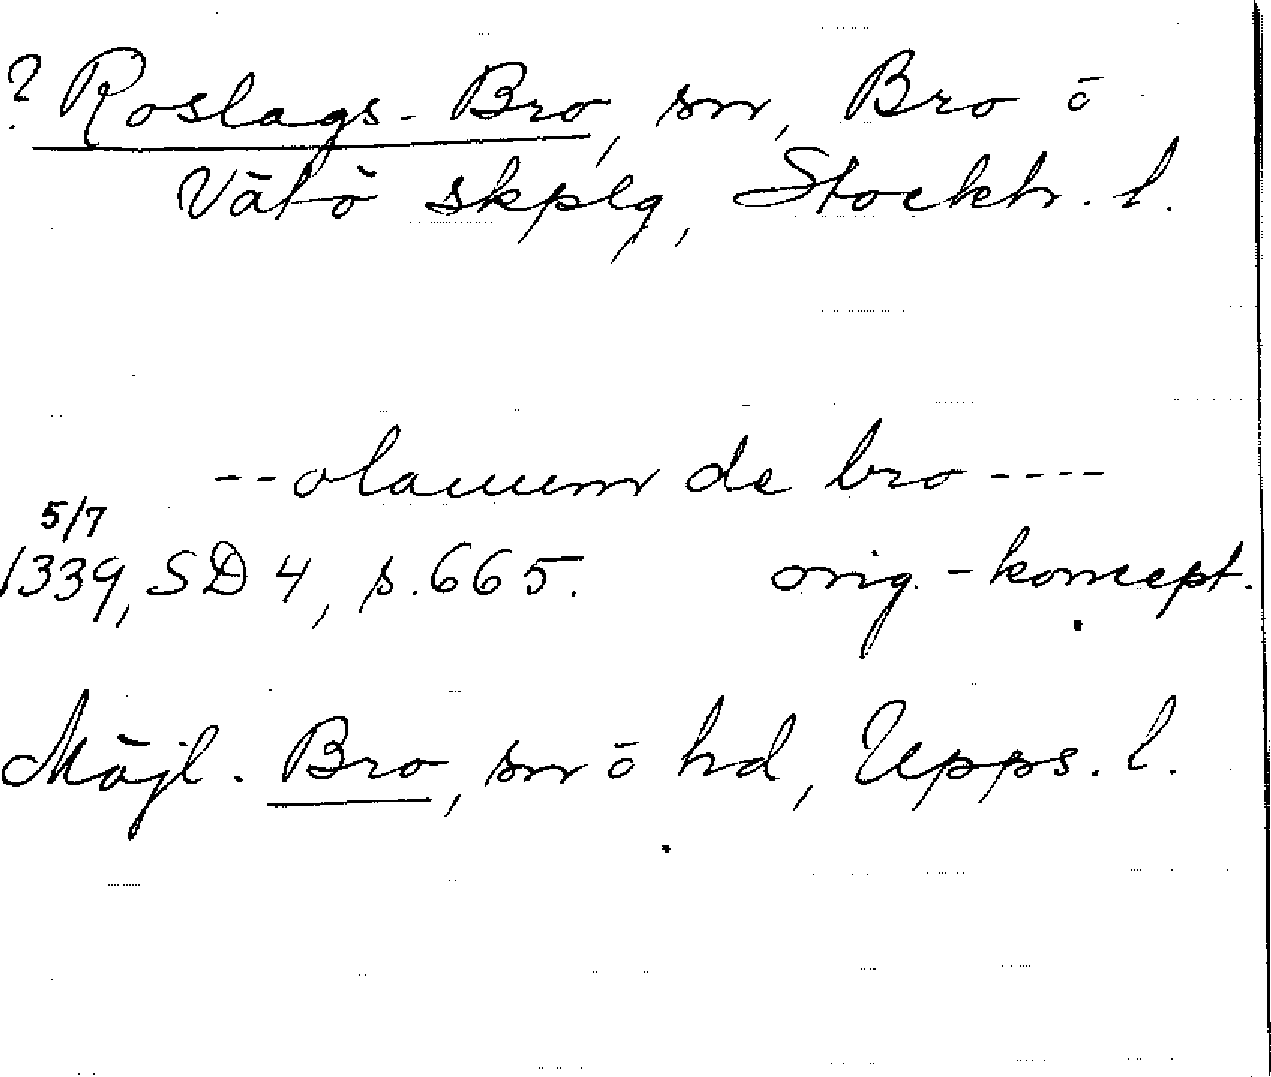 ? Roslags-Bro, sn, Bro o
Vätö skplg, Stockh. l.
--olauum de bro----
5/7
1339, SD 4, s. 665. orig.-koncept.
Möjl. Bro, sn o hd, Upps. l.